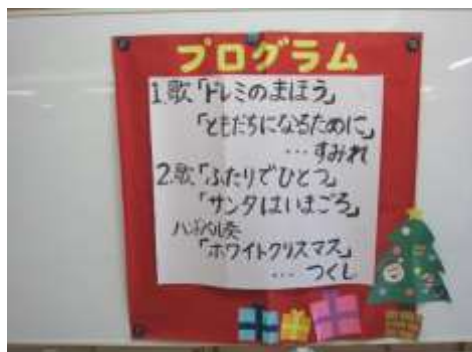 プログラム
1.歌「ドレミのまほう」
「ともだちになるために」
…すみれ
2.歌「ふたりでひとつ」
「サンタはいまごろ」
ハンドベル奏
「ホワイトクリスマス」
… つくし